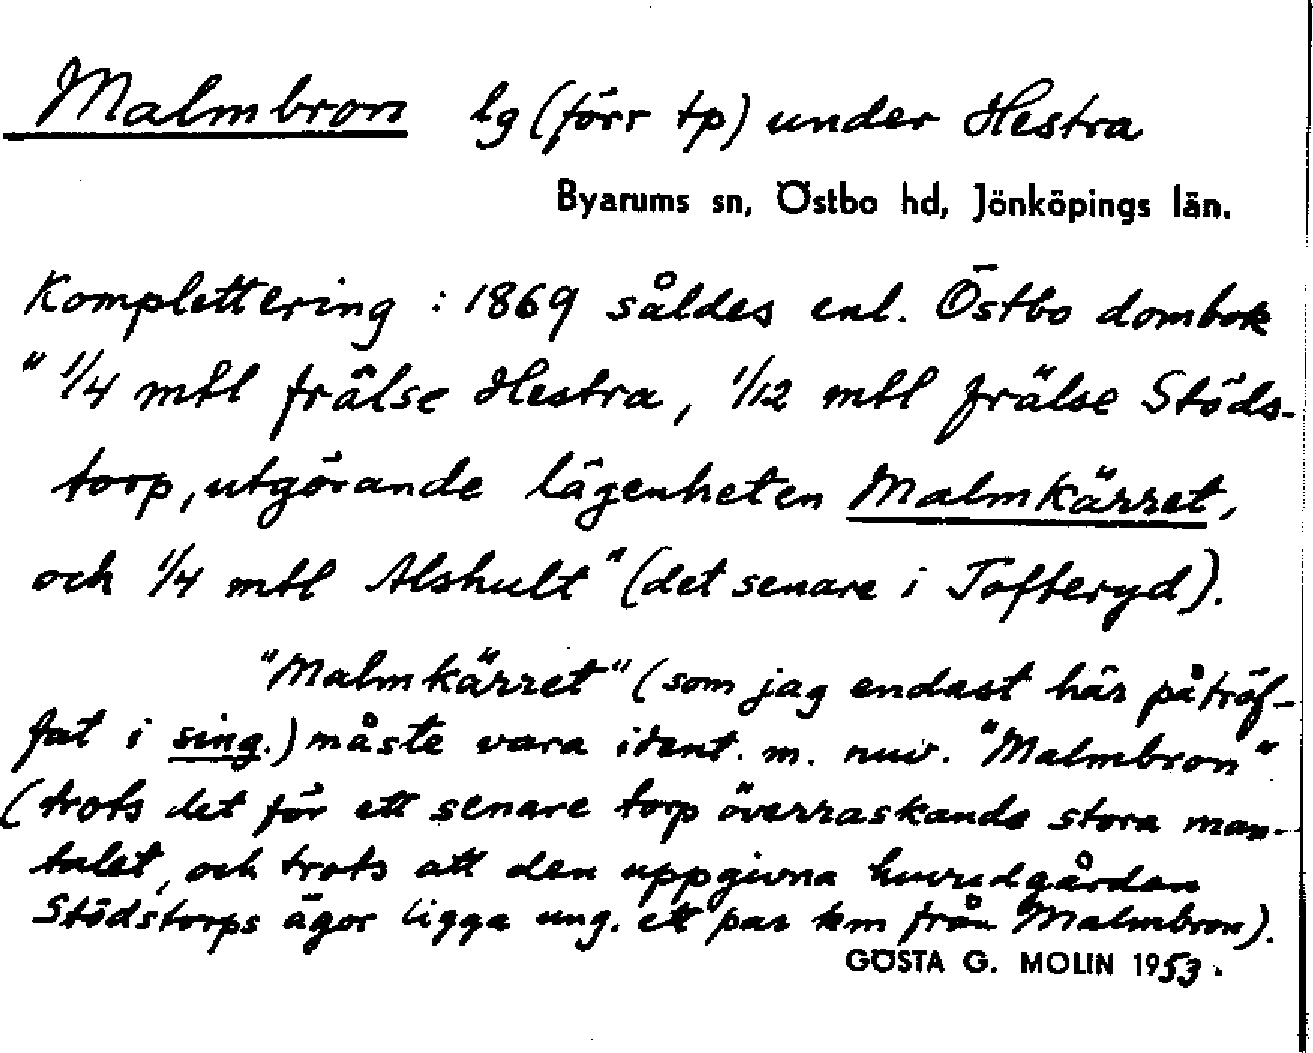 Malmbron lg (förr tp) under Hestra
Byarums sn, Östbo hd, Jönköpings län.
Komplettering : 1869 såldes enl. Östbo dombok
"1/4 mtl frälse Hestra, 1/12 mtl frälse Stöds-
torp, utgörande lägenheten Malmkärret,
och 1/4 mtl Alshult" (det senare i Tofteryd).
"Malmkärret" (som jag endast här påträf-
fat i sing.) måste vara ident. m. nuv. "Malmbron"
(trots det för ett senare torp överraskande stora man-
talet, och trots att den uppgivna huvudgården
Stödstorps ägor ligga ung. ett par km från Malmbron).
GÖSTA G. MOLIN 1953.